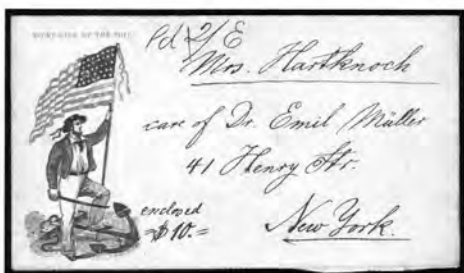 Pd 2/E
Mrs. Hartknoch
care of Dr. Emil Müller
41 Henry Str.
enclosed
$10.=
New York.